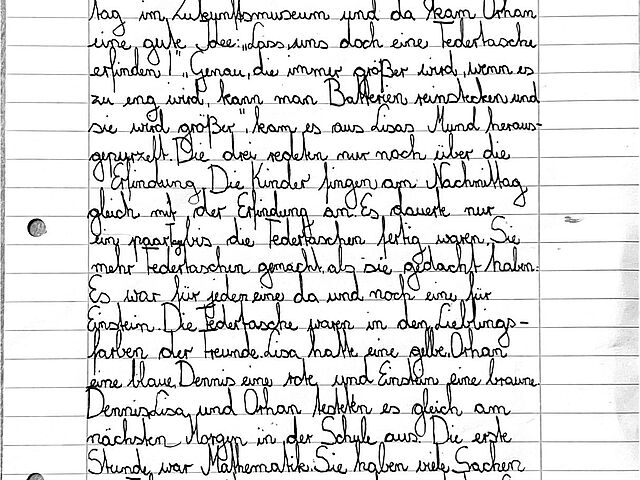 tag im Zukunftsmuseum und da kam Orhan
eine gute Idee: „Lass uns doch eine Federtasche
erfinden!" „Genau, die immer größer wird, wenn es
zu eng wird, kann man Batterien reinstecken und
sie wird größer", kam es aus Lisas Mund heraus-
gepurzelt. Die drei redeten nur noch über die
Erfindung. Die Kinder fingen am Nachmittag
gleich mit der Erfindung an. Es dauerte nur
ein paar Tage bis die Federtaschen fertig waren. Sie
mehr Federtaschen gemacht, als sie gedacht haben.
Es war für jeden eine da und noch eine für
Einstein. Die Federtasche waren in den Lieblings-
farben der Freunde. Lisa hatte eine gelbe, Orhan
eine blaue, Dennis eine rote und Einstein eine braune.
Dennis, Lisa und Orhan testeten es gleich am
nächsten Morgen in der Schule aus. Die erste
Stunde war Mathematik. Sie haben viele Sachen